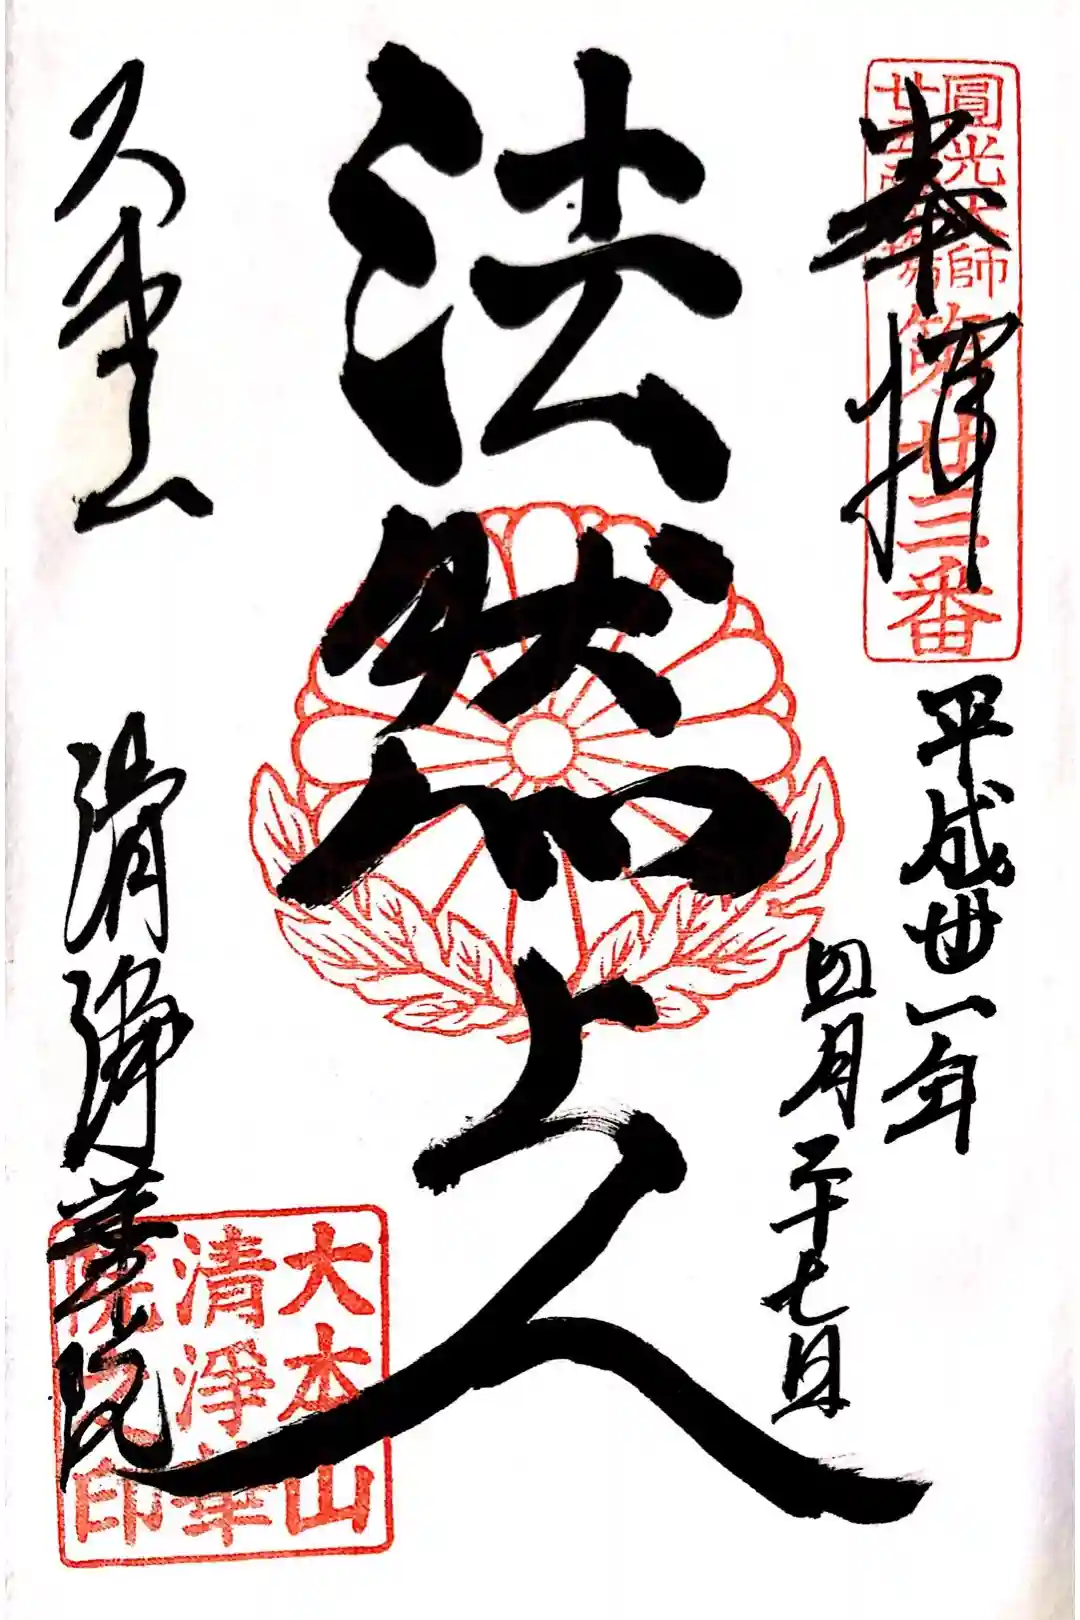 圓光大師
廿五霊場
第廿三番
奉拝
平成丗一年
四月二十七日
法然上人
大本山
清浄華院
大本山
清淨華
院之印